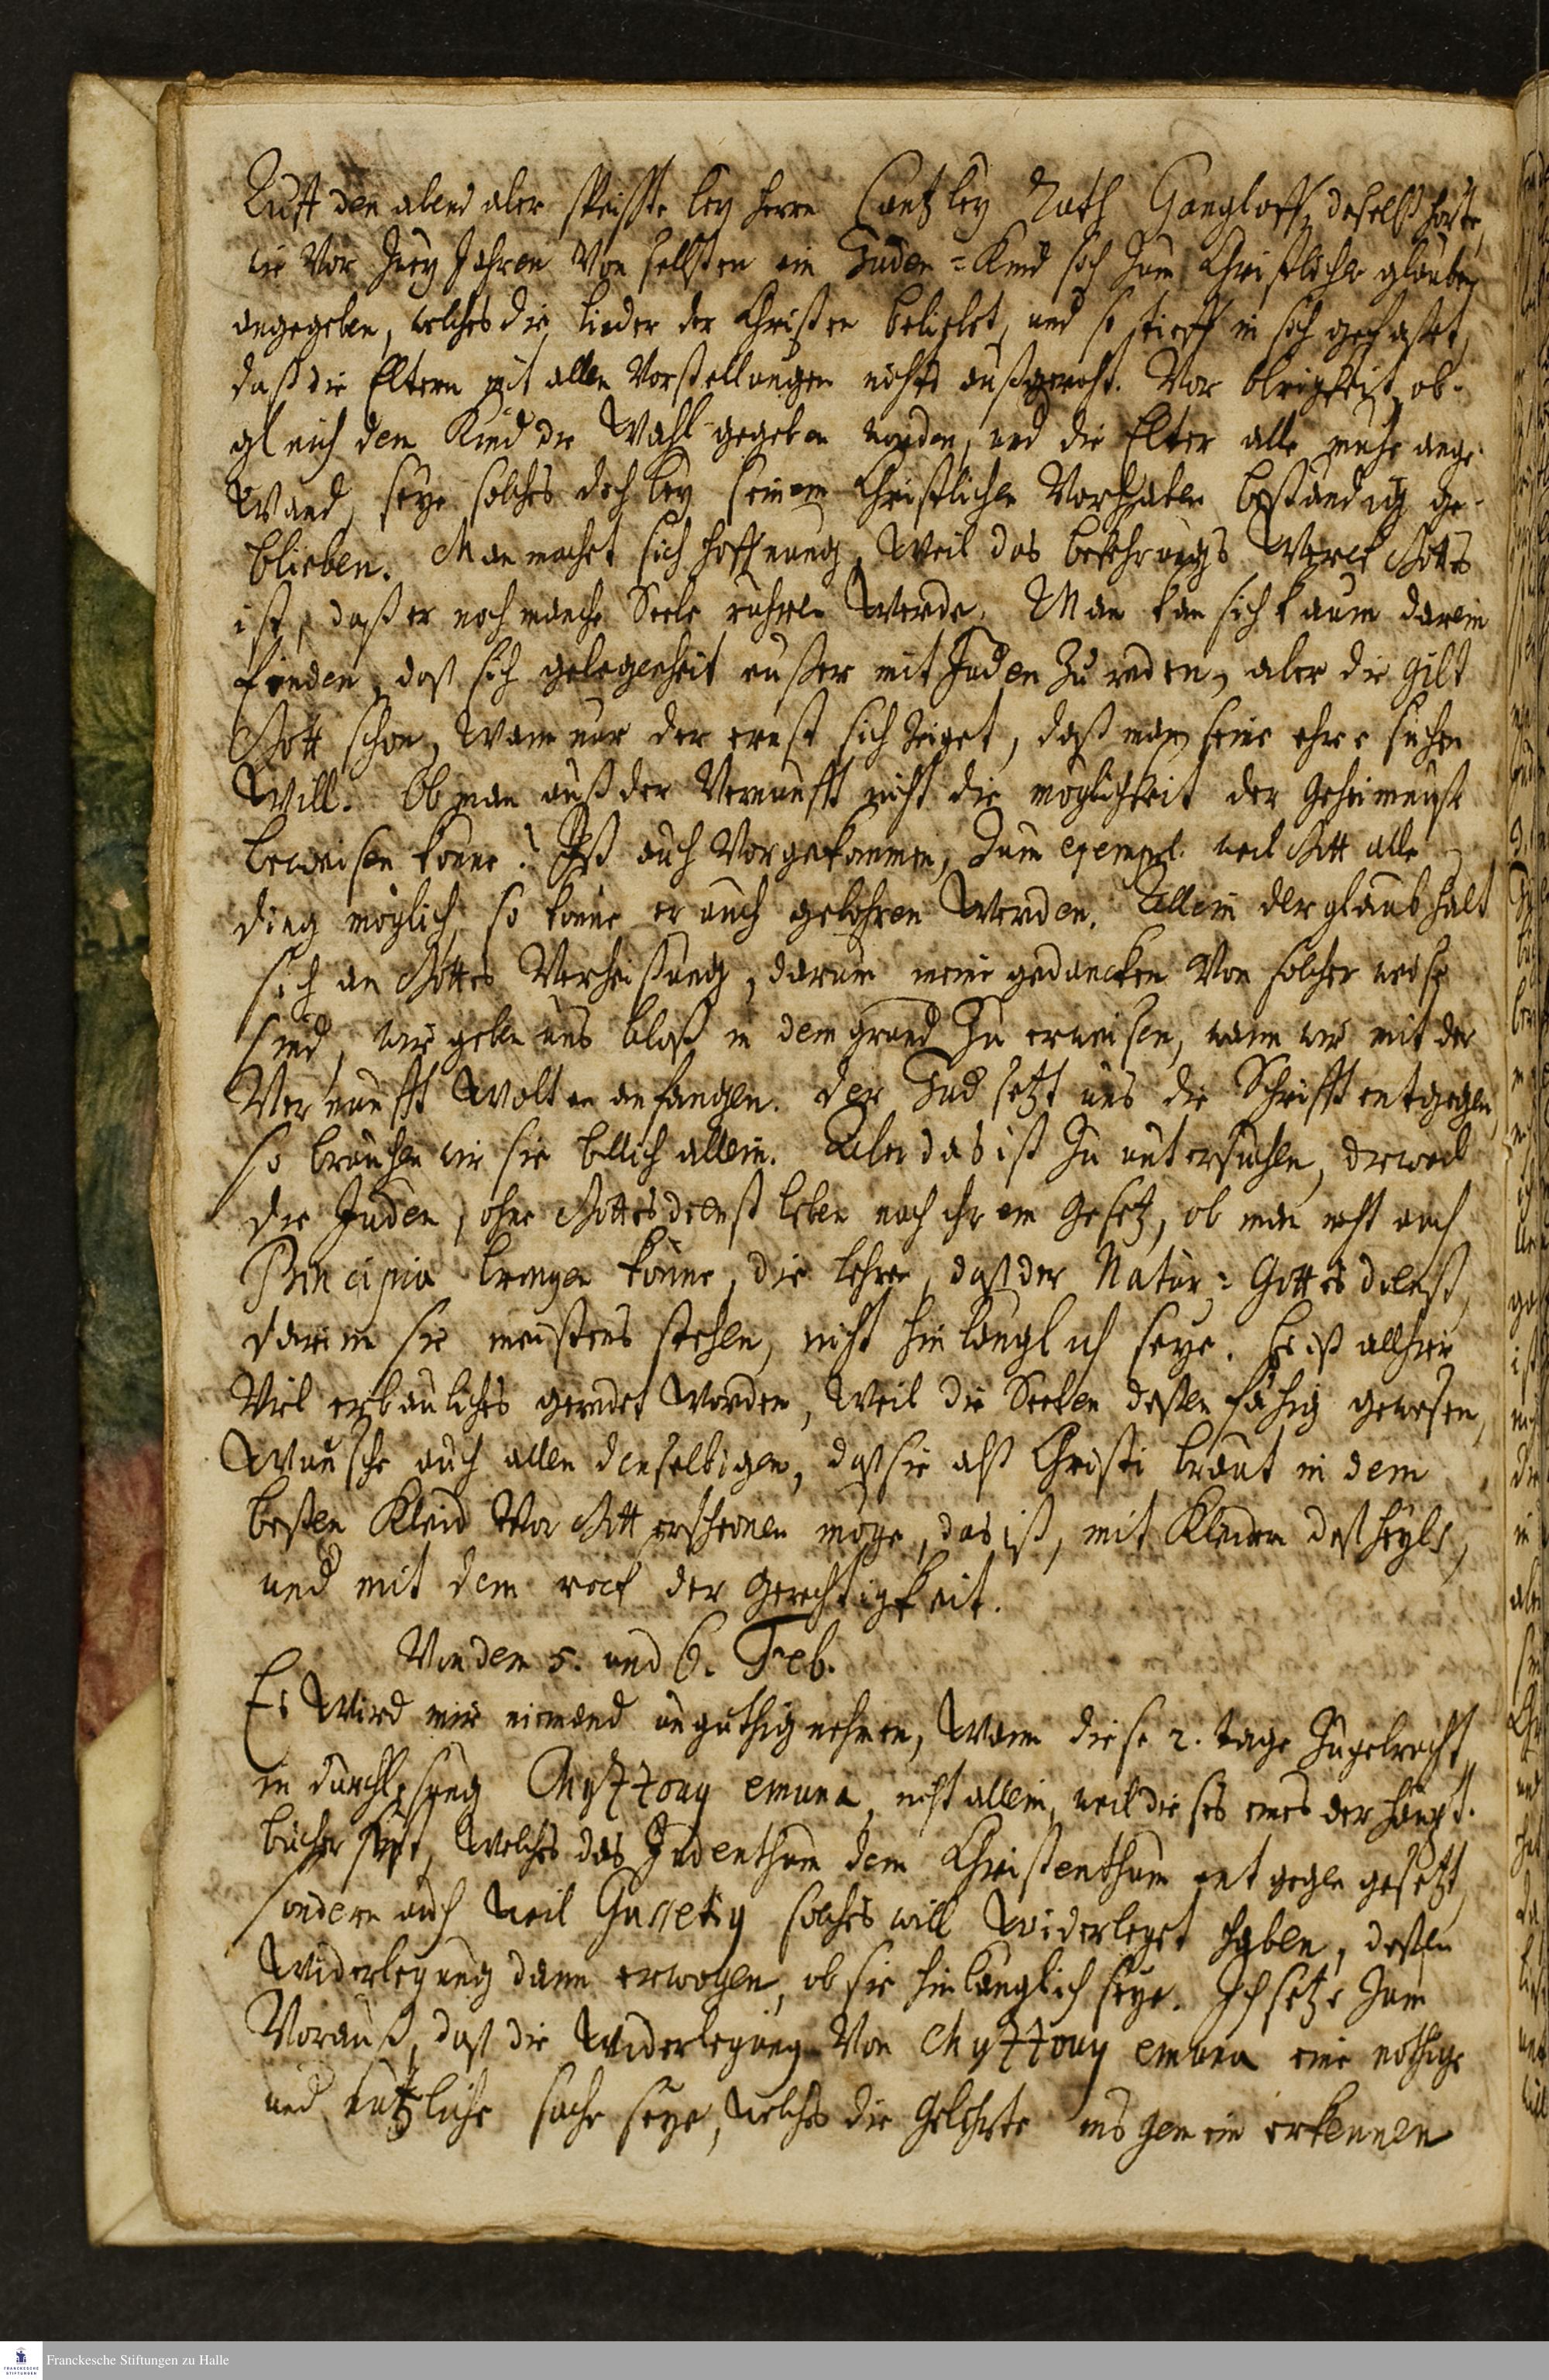 Auff den abend aber speisste bey Herrn Cantzley Rath Gangloff, daselbst hörte,
wie vor zwey Jahren von selbsten ein Juden-Kind sich zum Christlichen glauben
angegeben, welches die lieder der Christen beliebet, und so tieff in sich gefasset,
daß die Eltern mit allen Vorstellungen nichts außgericht. Vor obrigkeit, ob-
gleich dem Kind die Wahl gegeben worden, und die Elter alle muhe ange-
wand, seye solches doch bey seinem Christlichen Vorhaben beständig ge-
blieben. Man machet sich hoffnung, weil das bekehrungs Werck Gottes
ist, daß er noch manche Seele rühren werde. Man kan sich kaum darein
finden, daß sich gelegenheit eußer mit Juden zu reden, aber die gibt
Gott schon, wann nur der ernst sich zeiget, daß man seine ehre suchen
will. Ob man auß der Vernunfft nicht die möglichkeit der Geheimnuß
beweisen könne? Ist auch vorgekommen, zum exempel. weil Gott alle
ding möglich, so könne er auch gebohren werden. Allein der glaub halt
sich an Gottes Verheissung, darum meine gedancken von solcher weise
sind, wir geben uns bloß in dem grund zu erweisen, wann wir mit der
Vernunfft wolten anfangen. der Jud setzt uns die Schrifft entgegen,
so brauchen wir sie billich allein. Aber das ist zu untersuchen, dieweil
die Juden, ohne Gottesdienst leben nach ihrem Gesetz, ob man nicht auch
Principia bringen könne, die lehren, daß der Natur-Gottesdienst,
darinn sie meistens stehen, nicht hinlänglich seye. Es ist allhier
viel erbauliches geredet worden, weil die Seelen dessen fähig gewesen,
Wünsche auch allen denselbigen, daß sie alß Christi braut in dem
besten Kleid vor Gott erscheinen möge, das ist, mit Kleidern deß heyls,
und mit dem rock der Gerechtigkeit.
Von dem 5. und 6. Feb.
Es wird mir niemand unguthig nehmen, wann diese 2. tage zugebracht
in durchlesung Chyzzouy emuna, nicht allein, weil dieses eines der haupt-
bücher ist, welches das Judenthum dem Christenthum entgegen gesetzt,
sondern auch weil Gussetig solches will widerleget haben, dessen
Widerlegung dann erwogen, ob sie hinlänglich seye. Ich setze zum
Vorauß, daß die Widerlegung von Chyzzouy emuna eine nöthige
und nützliche sache seye, welches die Gelehrte ins gemein erkennen
Franckesche Stiftungen zu Halle